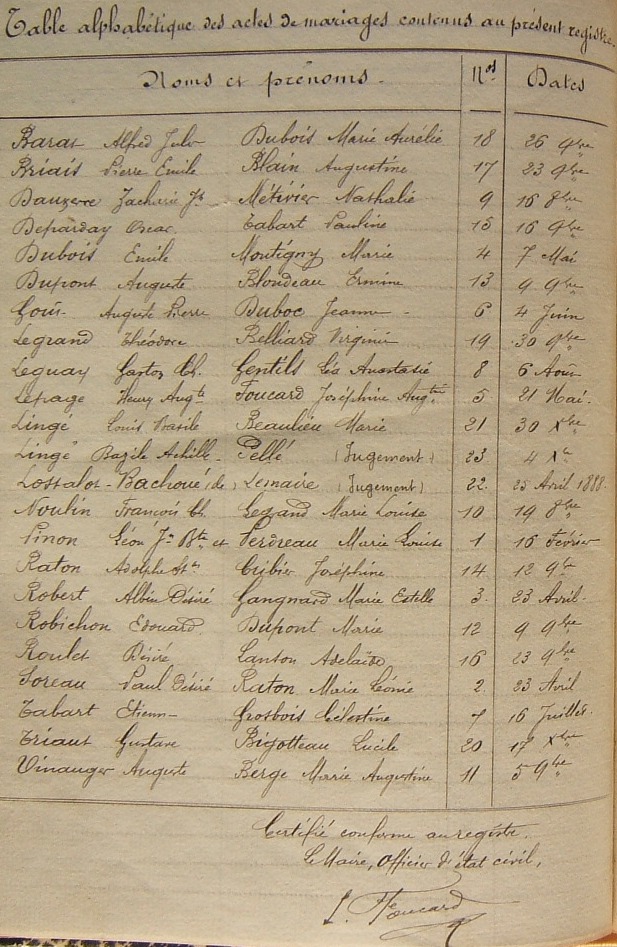 Table alphabétique des actes de mariages contenus au présent registre.
Noms et prénoms. Nos Dates
Barat Alfred Jules Dubois Marie Aurélie 18 26 9bre
Briais Pierre Emile Blain Augustine 17 23 9bre
Dauzerre Zacharie Jh Métivier Nathalie 9 16 8bre
Deparday Oscar Tabart Pauline 15 16 9bre
Dubois Emile Montigny Marie 4 7 Mai
Dupont Auguste Blondeau Ernine 13 9 9bre
Auguste Pierre Duboc Jeanne 6 4 Juin
Legrand Théodore Belliard Virginie 19 30 9bre
Leguay Gaston Ch. Gentils Léa Anastasie 8 6 Août
Lepage Henry Augte Foucard Joséphine Augtine 5 21 Mai.
Lingé Louis Basile Beaulieu Marie 21 30 Xbre
Lingé Bazile Achille Pellé (Jugement) 23 4 Xbre
Lossalos-Bachoué (de) Lemaire (Jugement) 22. 25 Avril 1888.
Noulin François Ch. Legand Marie Louise 10 19 8bre
Pinon Léon Jn Bte et Perdreau Marie Louise 1 16 Février
Raton Adolphe Cribier Joséphine 14 12 9bre
Robert Albin Désiré Gangnard Marie Estelle 3. 23 Avril.
Robichon Edouard. Dupont Marie 12 9 9bre
Roulet Désiré Lanson Adelaïde 16 23 9bre
Soreau Paul Désiré Raton Marie Léonie 2. 23 Avril
Tabart Etienne Grosbois Célestine 7 16 Juillet.
Triaut Gustave Bigotteau Lucile 20 17 Xbre
Vinauger Auguste Berge Marie Augustine 11 5 9bre
Certifié conforme au registre.
Le Maire, officier d'état civil,
L. Foucard